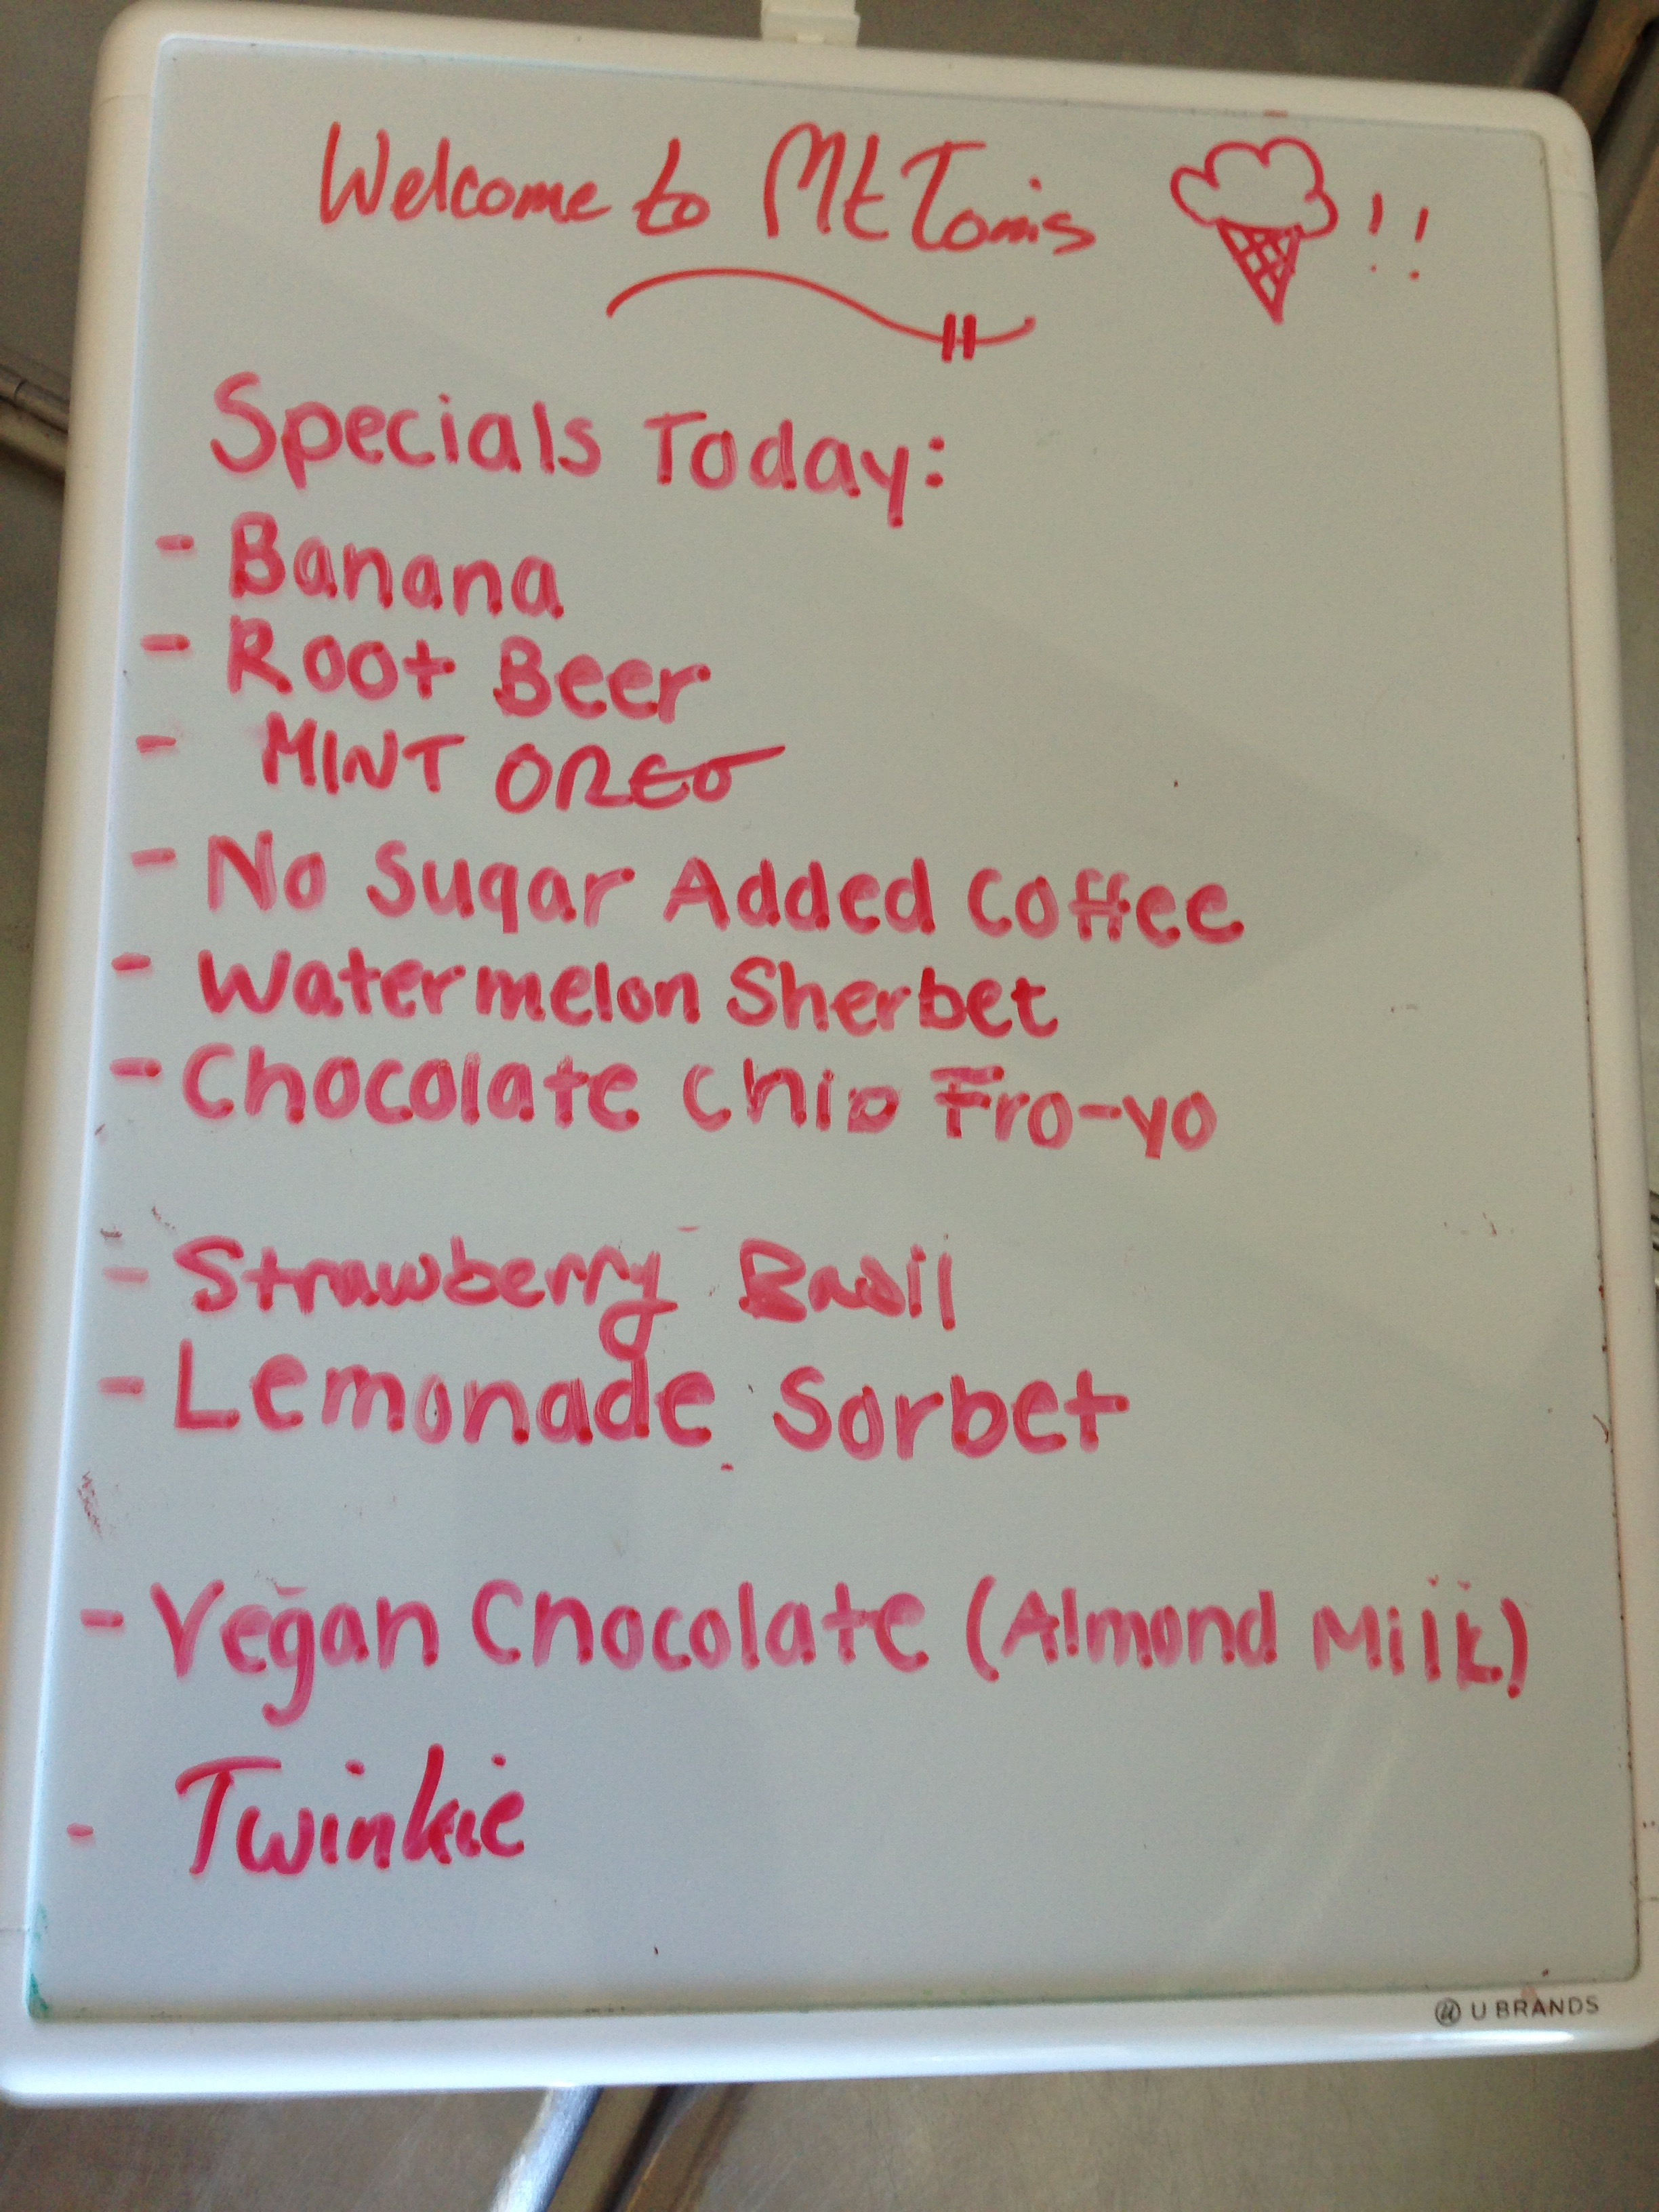 Welcome to Mt Tom's !!
Specials Today:
- Banana
- Root Beer
- MINT OREO
- No Sugar Added Coffee
- Watermelon Sherbet
- Chocolate Chip Fro-yo
- Strawberry Basil
- Lemonade Sorbet
- Vegan Chocolate (Almond Milk)
- Twinkie
U BRANDS